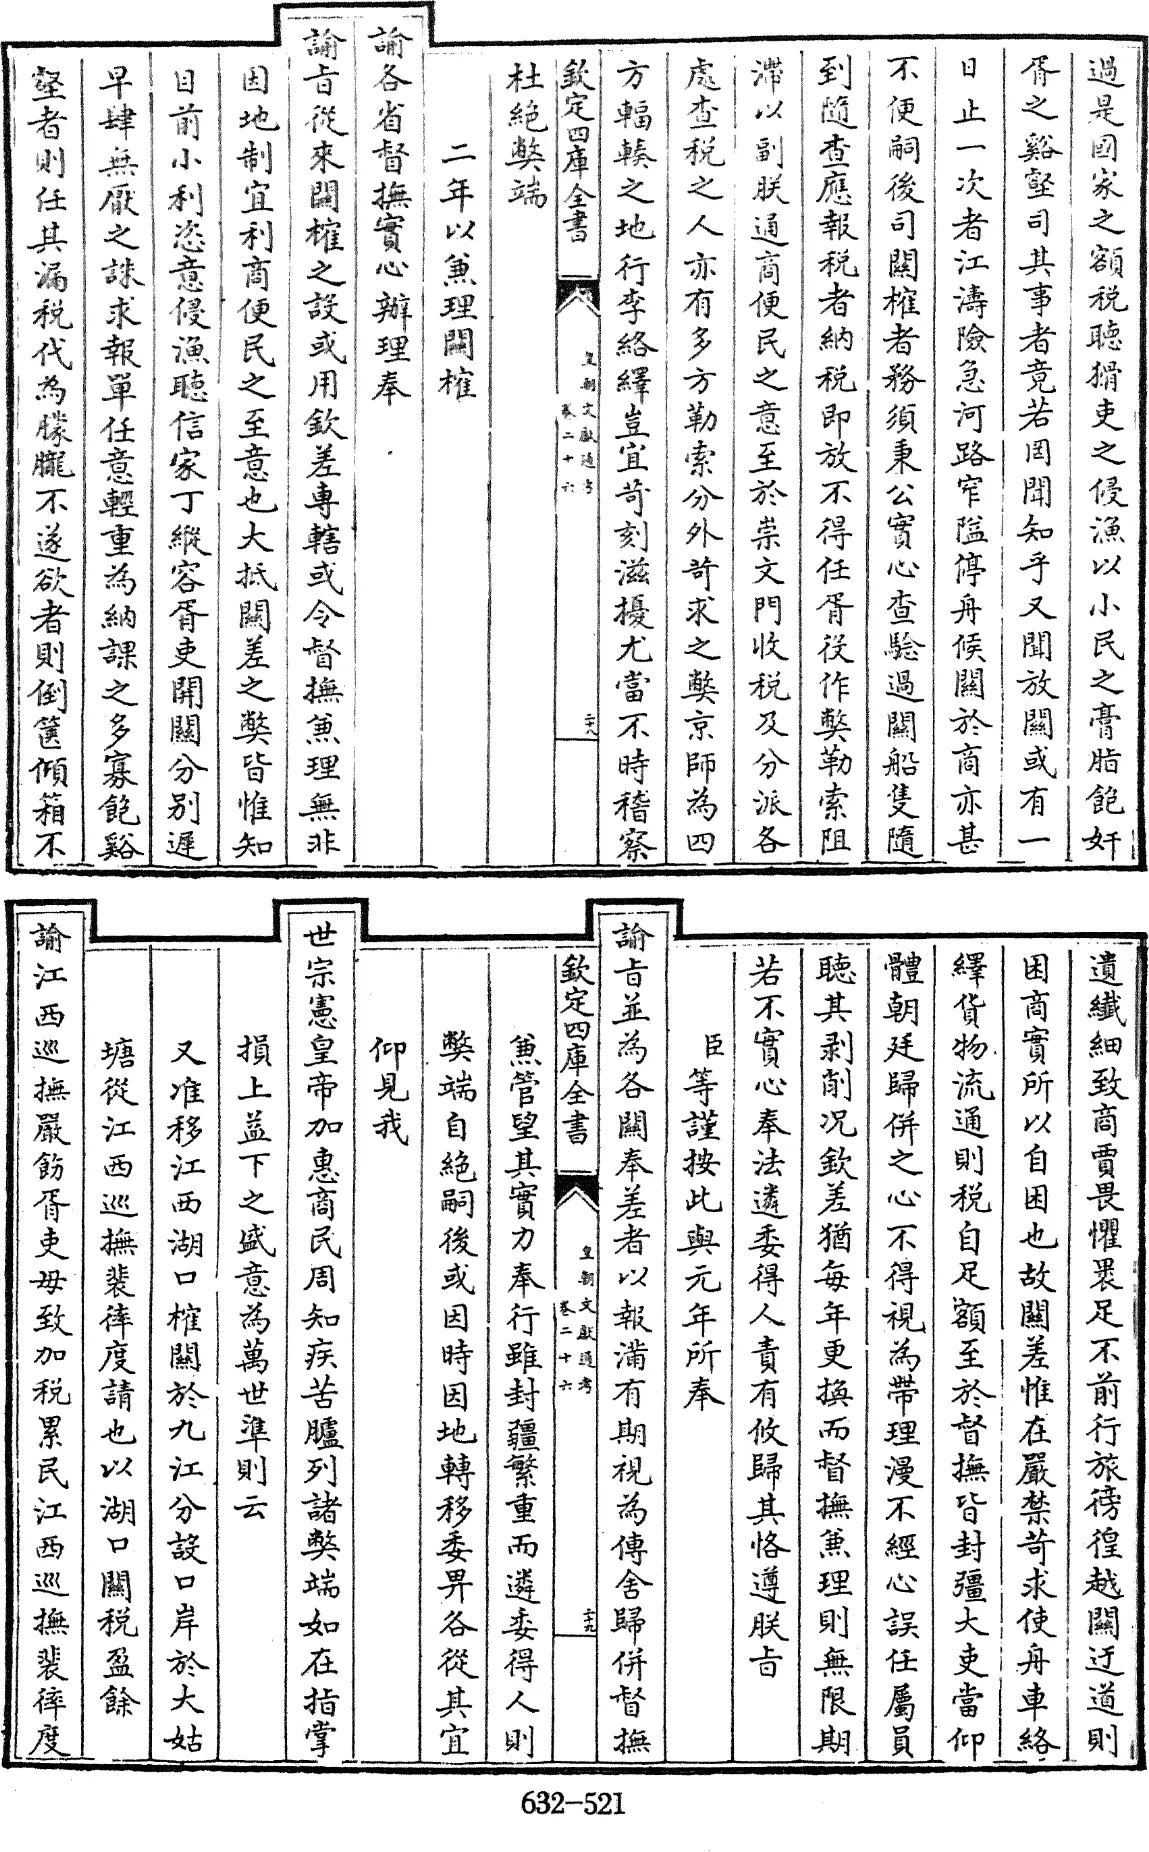 過是國家之額税聽猾吏之侵漁以小民之膏脂飽奸
胥之谿壑司其事者竟若罔聞知乎又聞放關或有一
日止一次者江濤險急河路窄隘停舟候關於商亦甚
不便嗣後司關榷者務須秉公實心查驗過關船隻隨
到隨查應報税者納税即放不得任胥役作弊勒索阻
滯以副朕通商便民之意至於崇文門收税及分派各
處查税之人亦有多方勒索分外苛求之弊京師為四
方輻輳之地行李絡繹豈宜苛刻滋擾尤當不時稽察
欽定四庫全書
皇朝文獻通考
卷二十六
二十八
杜絶弊端
二年以兼理關榷
諭各省督撫實心辦理奉
諭旨從來關榷之設或用欽差專轄或令督撫兼理無非
因地制宜利商便民之至意也大抵關差之弊皆惟知
目前小利恣意侵漁聽信家丁縱容胥吏開關分别遲
早肆無厭之誅求報單任意輕重為納課之多寡飽谿
壑者則任其漏税代為朦朧不遂欲者則倒篋傾箱不
遺纎細致商賈畏懼褁足不前行旅徬徨越關迂道則
困商實所以自困也故關差惟在嚴禁苛求使舟車絡
繹貨物流通則税自足額至於督撫皆封疆大吏當仰
體朝廷歸併之心不得視為帶理漫不經心誤任屬員
聽其剥削况欽差猶每年更換而督撫兼理則無限期
若不實心奉法遴委得人責有攸歸其恪遵朕旨
臣等謹按此與元年所奉
諭旨並為各關奉差者以報滿有期視為傳舍歸併督撫
欽定四庫全書
皇朝文獻通考
卷二十六
二十九
兼管望其實力奉行雖封疆繁重而遴委得人則
弊端自絶嗣後或因時因地轉移委畀各從其宜
仰見我
世宗憲皇帝加惠商民周知疾苦臚列諸弊端如在指掌
損上益下之盛意為萬世準則云
又准移江西湖口榷關於九江分設口岸於大姑
塘從江西巡撫裴𢕖度請也以湖口關税盈餘
諭江西巡撫嚴飭胥吏毋致加税累民江西巡撫裴𢕖度
632-521